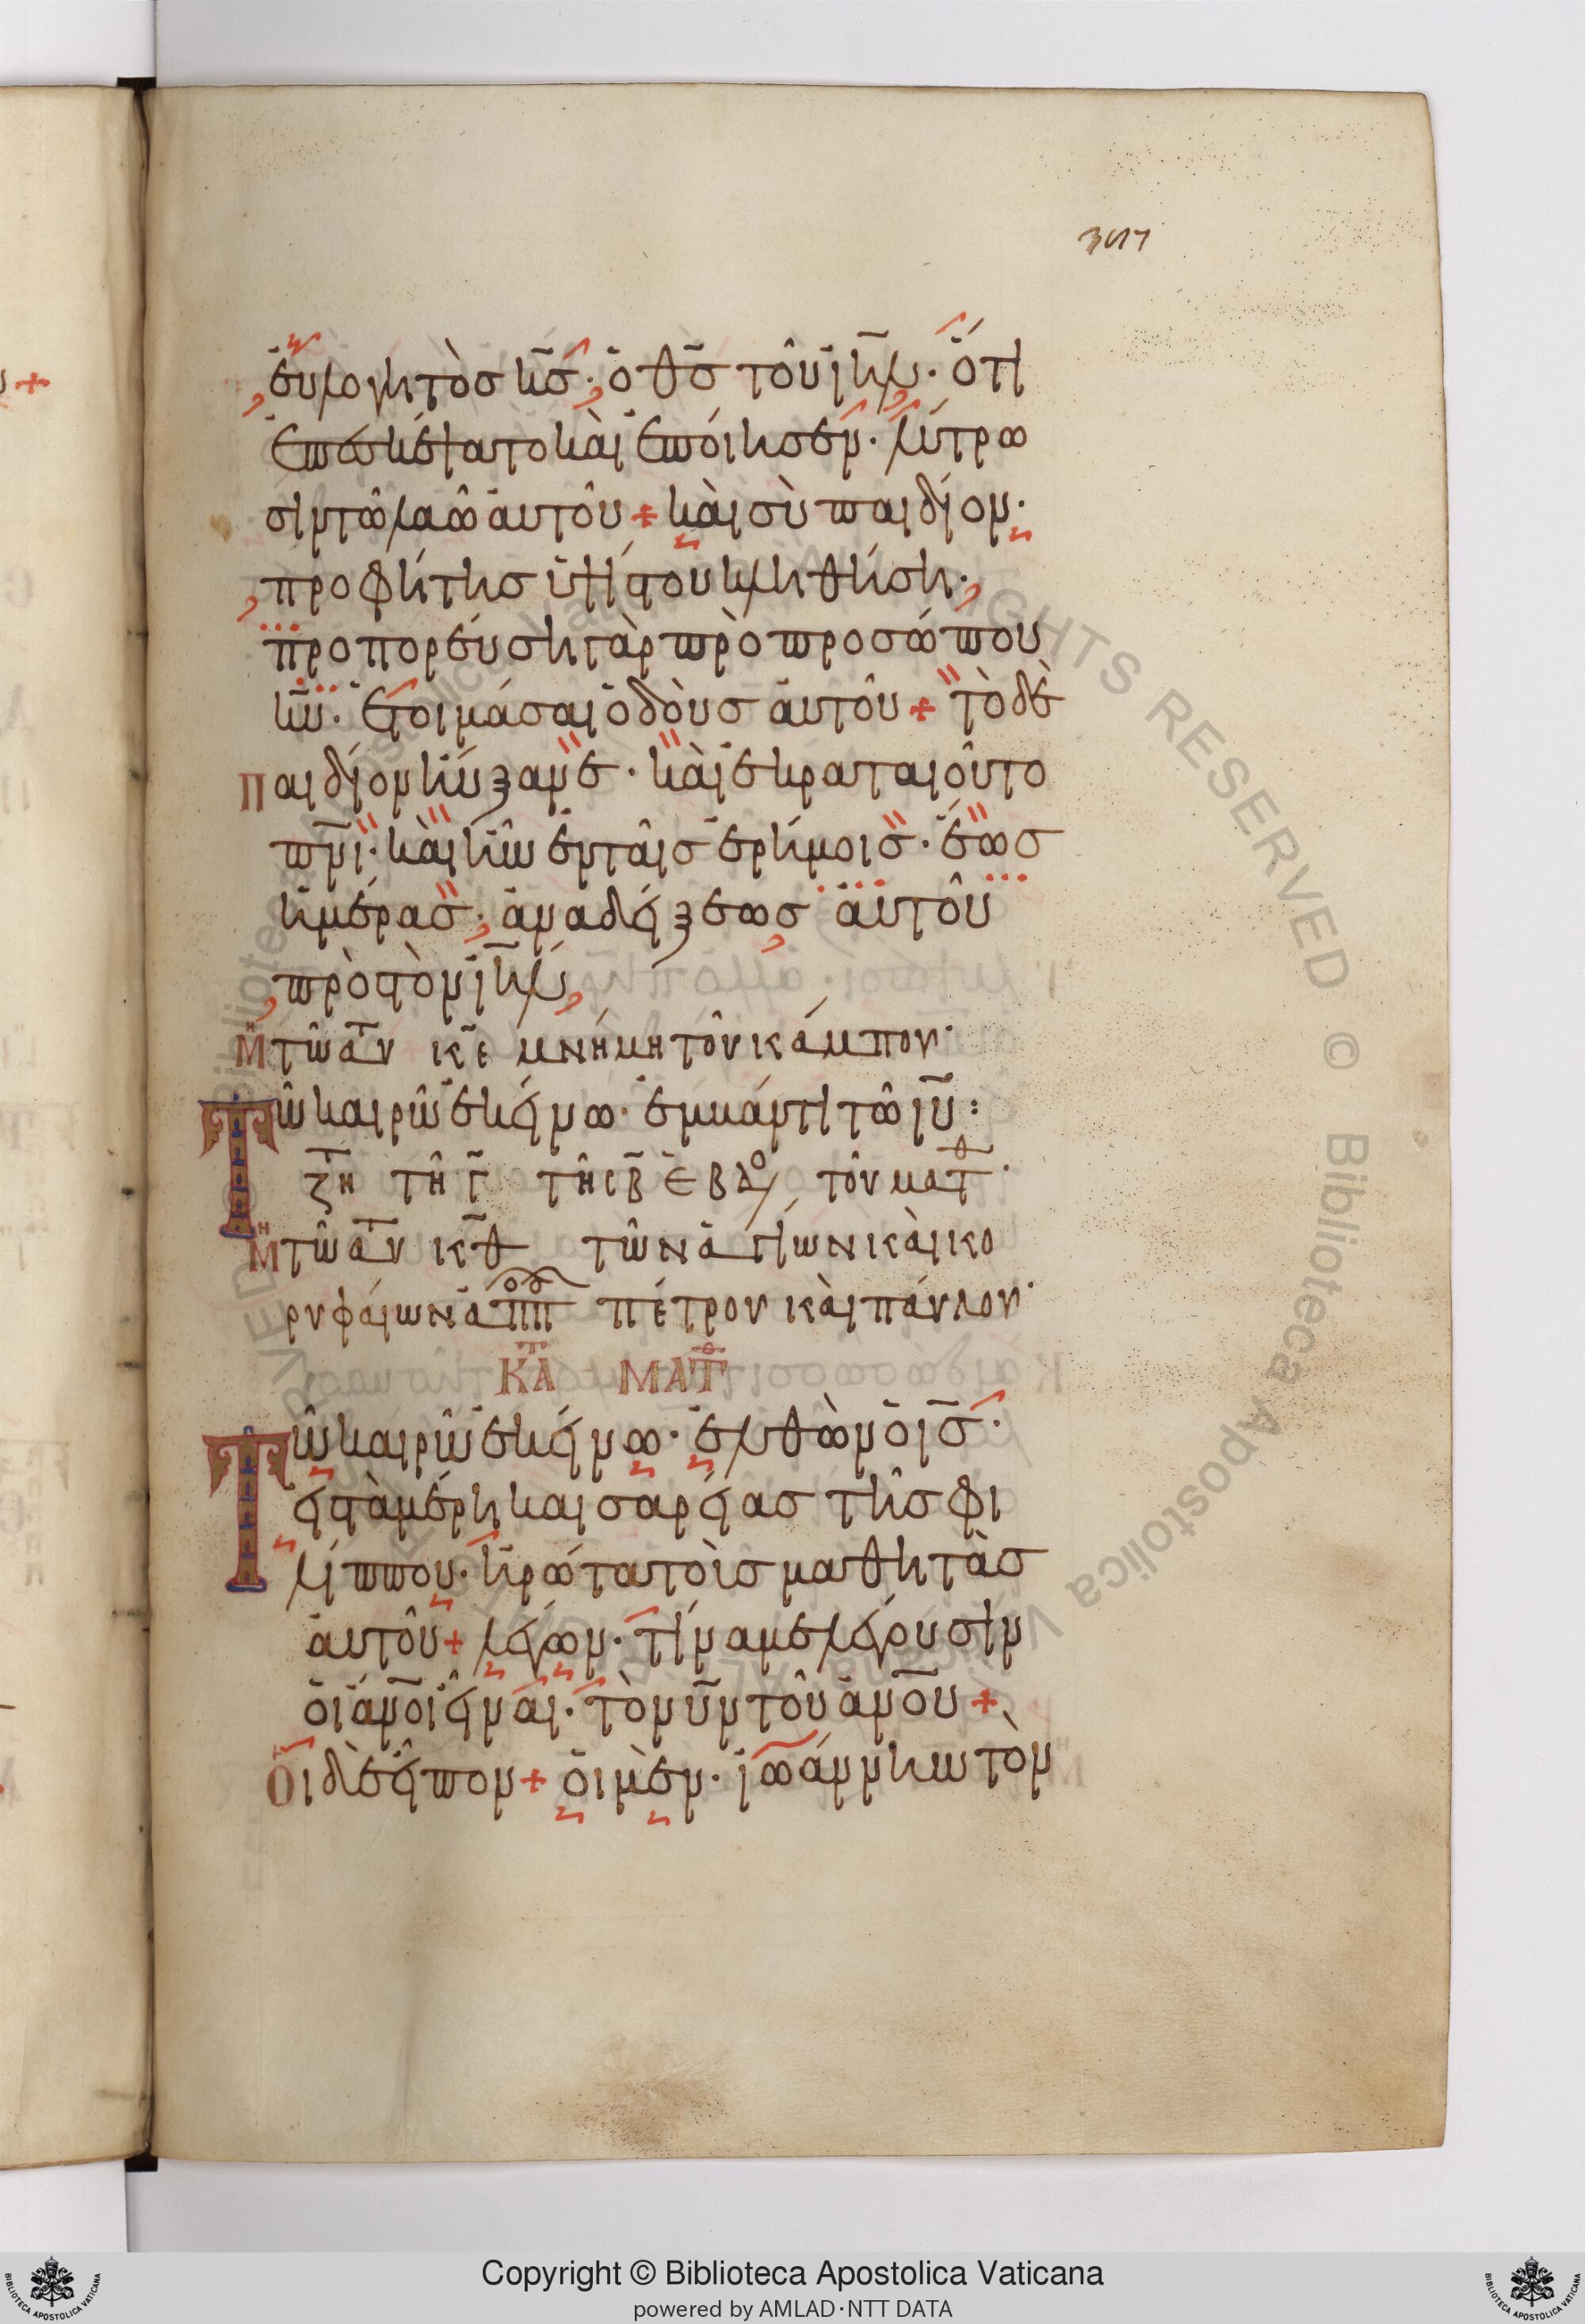 347
εὐλογητὸσ κ̅σ̅· ὁ θ̅σ̅ τοῦ ἰη̅λ̅· ὅτι
ἐπεσκέψατο καὶ ἐποίησεν· λύτρω
σιν τῶ λαῶ αὐτοῦ + καὶ σὺ παιδίον·
προφήτησ ὑψίστου κληθήση·
προπορεύση γὰρ πρὸ προσώπου
κ̅υ̅· ἑτοιμάσαι ὁδοὺσ αὐτοῦ + τὸ δὲ
παιδίον ηὔξανε· καὶ ἐκραταιοῦτο
π̅ν̅ι̅· καὶ ἦν ἐν ταῖσ ἐρήμοισ· ἕωσ
ἡμέρασ· ἀναδείξεωσ αὐτοῦ
πρὸσ τὸν ἰη̅λ̅
Μη τῶ αυτ̅ν κ̅ε̅ μνήμη τοῦ κάμπου·
Τῶ καιρῶ ἐκείνω· ἐμβάντι τῶ ι̅υ̅:
ζη τῆ γ̅ τῆσ β̅ ἑβδο τοῦ ματθ·
Μη τῶ αυτ̅ν κ̅θ̅ τῶν ἁγίων καὶ κο
ρυφαίων ἀποσ πέτρου καὶ παύλου·
Κατὰ ΜΑΤΘ
Τῶ καιρῶ ἐκείνω· ἐλθὼν ὁ ι̅σ̅·
εἰσ τὰ μέρη καισαρείασ τῆσ φι
λίππου· ἠρώτα τοὺσ μαθητὰσ
αὐτοῦ + λέγων· τίνα με λέγουσιν
οἱ ἄ̅ν̅ο̅ι̅ εἶναι· τὸν υ̅ν̅ τοῦ ἀ̅ν̅ο̅υ̅ +
Οἱ δὲ εἶπον + οἱ μὲν· ἰωάννην τὸν
Copyright © Biblioteca Apostolica Vaticana
powered by AMLAD·NTT DATA